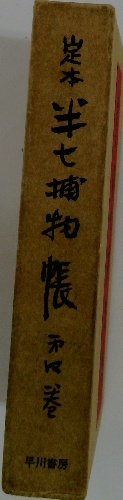 定本
半七捕物帳
第四巻
早川書房